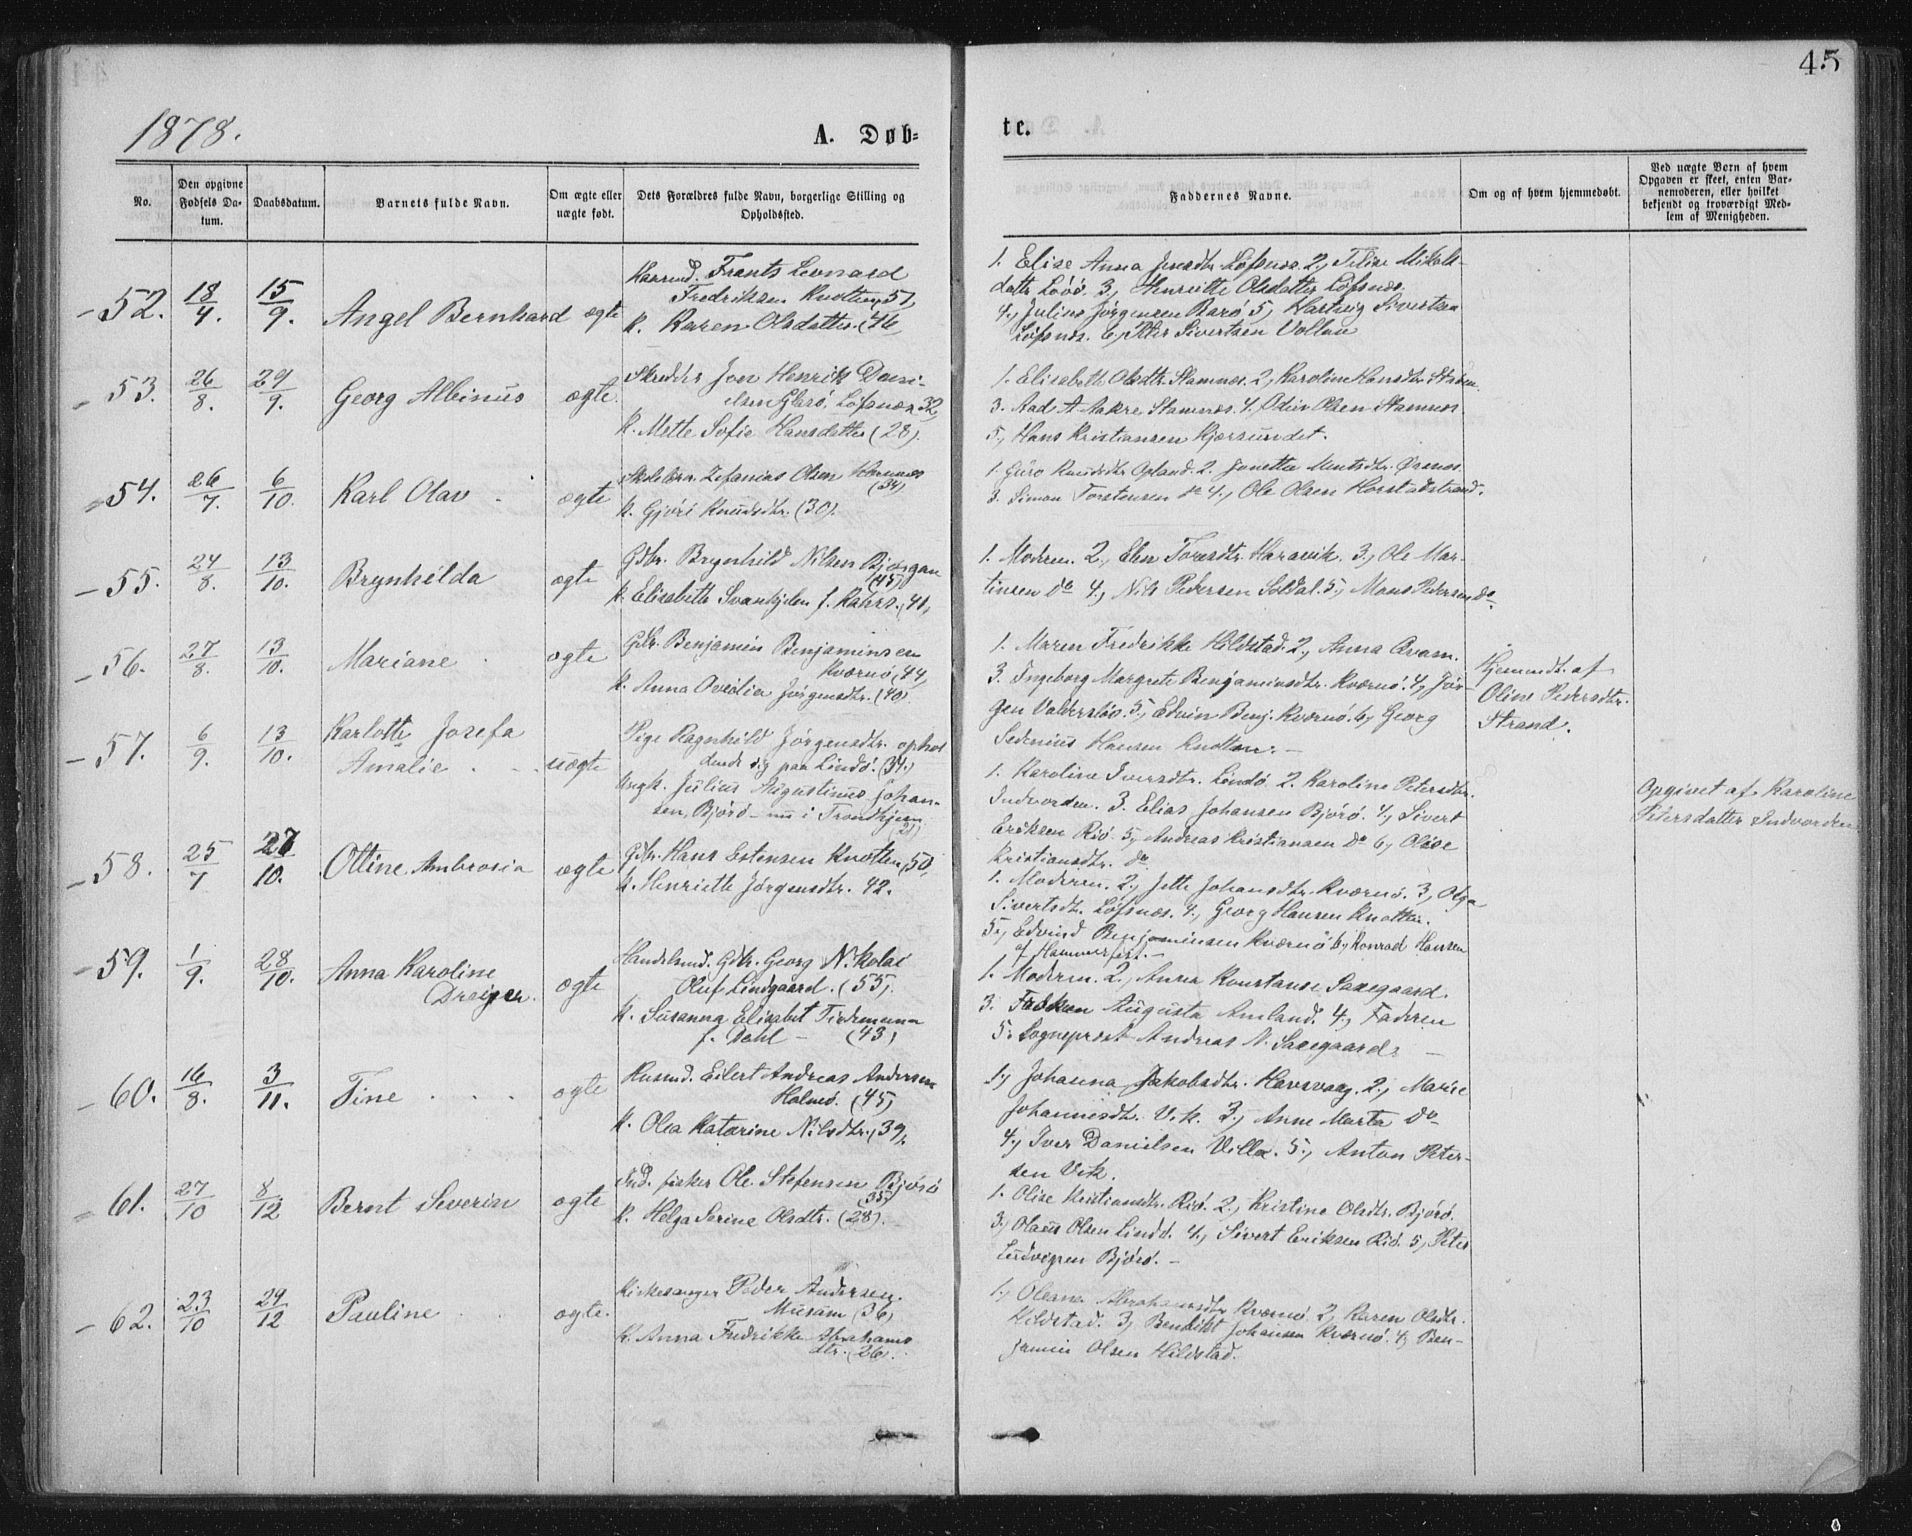 45
1878.
A. Døb-
te.
No.
Den opgivne Fødsels Da-tum.
Daabsdatum.
Barnets fulde Navn.
Om ægte eller uægte født.
Dets Forældres fulde Navn, borgerlige Stilling og Opholdssted.
Faddernes Navne.
Om og af hvem hjemmedøbt.
Ved uægte Børn af hvem Opgaven er skeet, enten Bar-nemoderen, eller hvilket bekjendt og troværdigt Med-lem af Menigheden.
52. 18/4. 15/9. Angel Bernhard ægte
Frants Leonard
Fredriksen Knotten 51,
k. Karen Olsdatter (46,
1. Elise Anna Løfsnes. 2,
3, Henriette Olsdatter Løfsnes.
4, Julius Jørgensen Rarø 5, Hartvig Sivertsen
Løfsnes. 6, Peter Sivertsen Vollan
53. 26/8. 29/9. Georg Albinus ægte.
Skredder Jon Henrik Dani-
elsen Løfsnes 32,
k. Mette Sofie Hansdatter (28).
1. Elisabeth Olsdtr. Stamnes. 2, Karoline Hansdtr.
3. Stamnes. 4, Odin Olsen Stamnes.
5, Hans Kristiansen Kjærsundet.
54. 26/7. 6/10. Karl Olav ægte
Zefanias Olsen
(34)
k. Gjøri Knudsdtr. (30).
1. Guro Knudsdtr. Opland. 2. Jonetta
3. Simon Torstensen do 4, Ole Olsen
55. 24/8. 13/10. Brynhilda ægte
Gdbr. Brynhild Nilsen Bjørgan
(45)
k. Elisabeth
1. Moderen. 2, Elen 3, Ole Mar-
tinsen do 4, Nils Pedersen Soldal. 5, Mons Pedersen do.
56. 27/8. 13/10. Mariane ægte
Gdbr. Benjamin Benjaminsen
Kværnø (44,
k. Anna Jørgensdtr. (40)
1. Maren Fredrikke Hildstad. 2, Anna Qvam.
3. Ingeborg Margrete Benjaminsdtr. Kværnø. 4, Jør-
gen 5, Edvin Benj. Kværnø. 6, Georg
Sedenius Hansen Knotten. -
Hjemmedt. af
Oline Pedersdtr.
Strand.
57. 6/9. 13/10. Karlotte Josefa
Amalie uægte
Pige Ragnhild Jørgensdtr. ophol
dende sig paa Lindø. (34.)
Ungk. Julius Augustinus Johan-
sen, Bjørø - nu i Trondhjem
(21)
1. Karoline Iversdtr. Lindø 2. Karoline Petersdtr.
Indvorden. 3. Elias Johansen Bjørø. 4, Sivert
Eriksen Riø. 5, Andreas Kristiansen do 6, Olise
Kristiansdtr. do
Opgivet af Karoline
Petersdatter Indvorden
58. 25/7 27/10. Ottine Ambrosia ægte
Gdbr. Hans Estensen Knotten (50,
k. Henriette Jørgensdtr. 42.
1. Moderen. 2, Jette Johansdtr. Kværnø. 3, Olga
Sivertsdtr. Løfsnes. 4, Georg Hansen Knotten.
5, Edvind Benjaminsen Kværnø 6, Konrad Hansen
af Hammerfest. -
59. 1/9. 28/10. Anna Karoline
Dreijer. ægte
Handelsmd. Gdbr. Georg Nikolai
Oluf Lindgaard. (55).
k. Susanna Elisabet Tiedemann
f. Dahl - (43)
1. Moderen. 2, Anna Konstanse Saxegaard.
3. Frøken Augusta Amland. 4, Faderen
5. Sogneprest Andreas N. Saxegaard. -
60. 16/8. 3/11. Tine ægte
Husmd. Eilert Andreas Andersen
Holmø. (45)
k. Olea Katarine Nilsdtr. (39,
1, Johanna Jakobsdtr. Havsvaag. 2, Marie
Johannesdtr. Vik. 3, Anne Marta do
4, Iver Danielsen Villa. 5, Anton Peter-
sen Vik.
61. 27/10 8/12 Bernt Severin ægte
Ind. fisker Ole Stefensen Bjørø
(35)
k. Helga Serine Olsdtr. (28).
1. Olise Kristiansdtr. Riø. 2, Kristine Olsdtr. Bjørø.
3, Olaus Olsen Lindø. 4, Sivert Eriksen Riø. 5, Peter
Ludvigsen Bjørø. -
62. 23/10 29/12 Pauline ægte.
Kirkesanger Peder Andersen.
Murum (36)
k. Anna Fredrikke Abrahams
dtr. (26).
1, Oleana Abrahamsdtr. Kværnø 2, Karen Olsdtr.
Hildstad. 3, Benedikt Johansen Kværnø. 4, Ben-
jamin Olsen Hildstad.